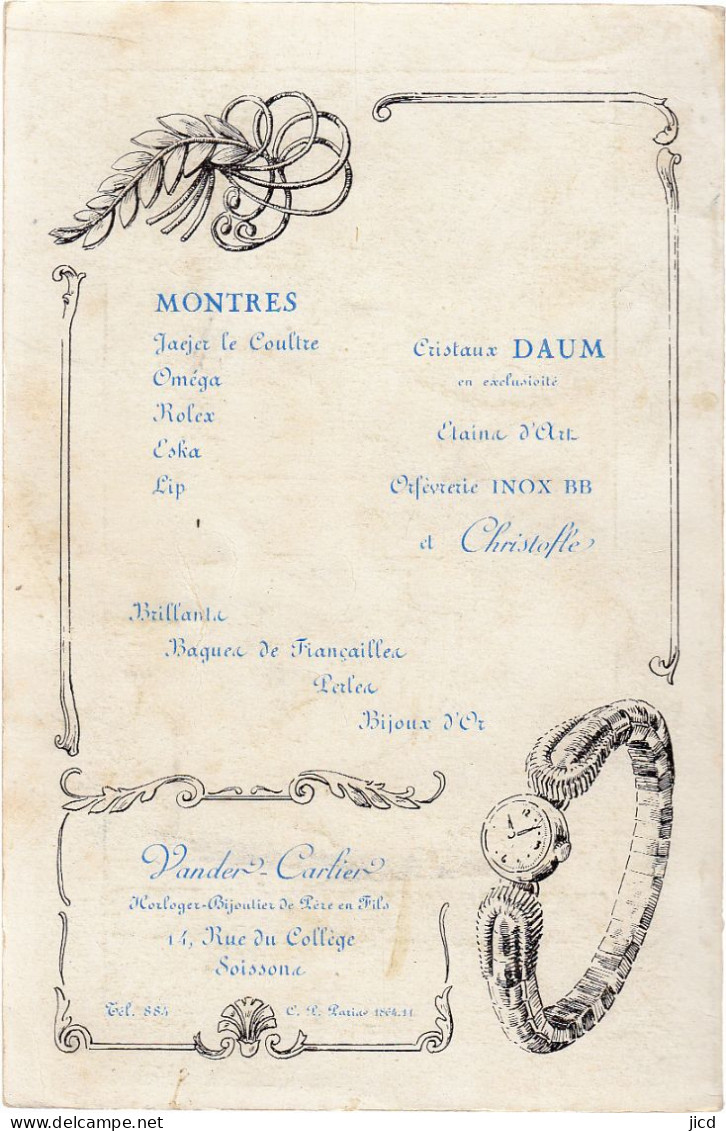 MONTRES
Jaejer le Coultre
Oméga
Rolex
Eska
Lip
Cristaux DAUM
en exclusivité
Etains d'Art
Orfèvrerie INOX BB
et Christofle
Brillants
Bagues de Fiançailles
Perles
Bijoux d'Or
Vander-Carlier
Horloger-Bijoutier de Père en Fils
14, Rue du Collège
Soissons
Tél. 884 C. P. Paris 1864.11
jicd